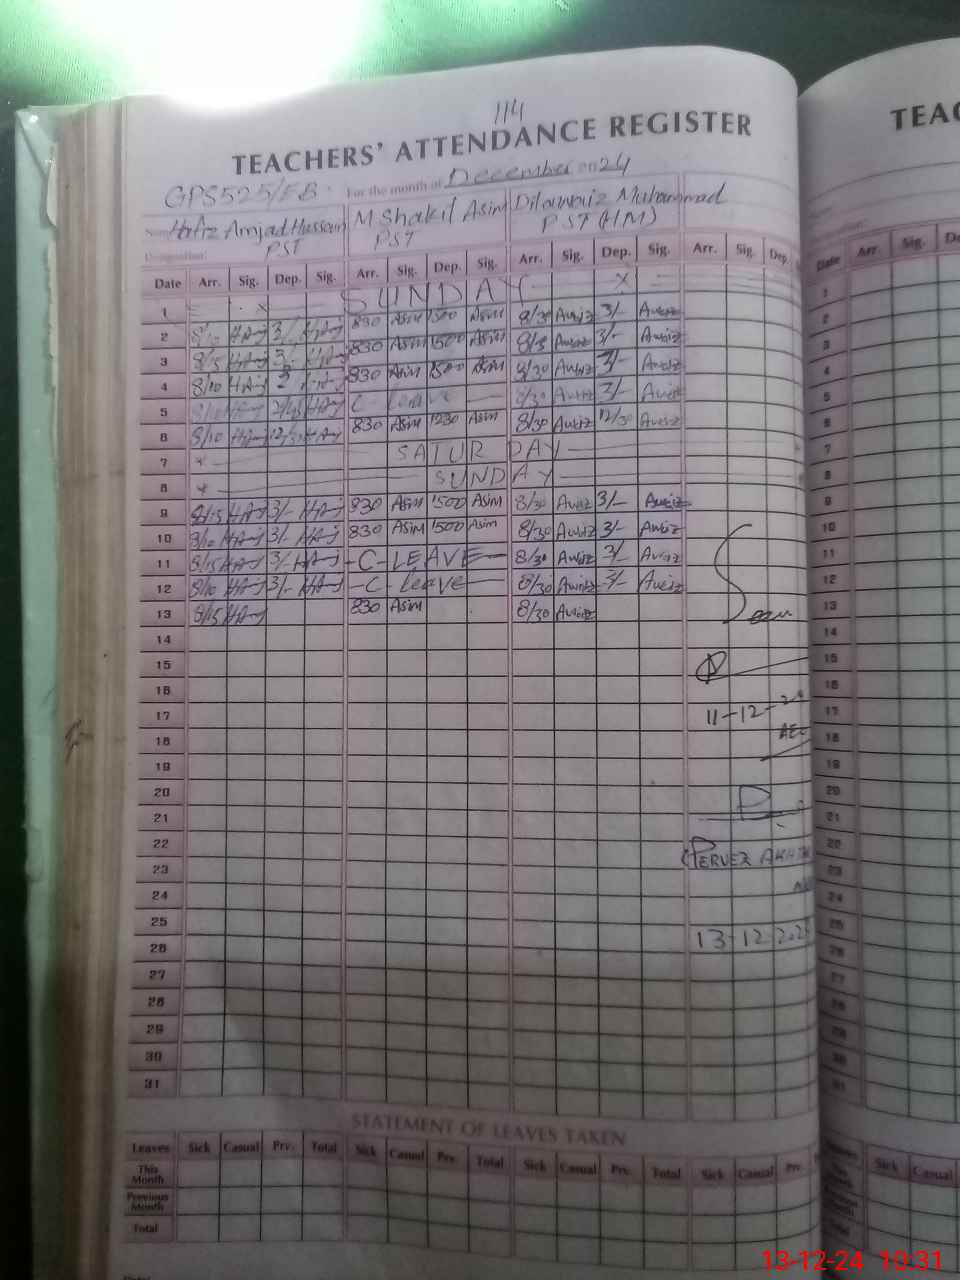 114
TEACHERS' ATTENDANCE REGISTER
GPS 525/EB. For the month of December on 24
Hafiz Amjad Hussain M Shakil Asim Dilawaiz Muhammad
PST PST PST (HM)
Date Arr. Sig. Dep. Sig. Arr. Sig. Dep. Sig. Arr. Sig. Dep. Sig. Arr. Sig. Dep.
1 SUNDAY
2 8/10 HA-J 3/- HA-J 830 Asim 1500 Asim 8/30 Awaiz 3/- Awaiz
3 8/15 HA-J 3/- HA-J 830 Asim 1500 Asim 8/30 Awaiz 3/- Awaiz
4 8/10 HA-J 3 830 Asim 1500 Asim 8/30 Awaiz 3/- Awaiz
5 HA-J C- Leave 8/30 Awaiz 3/- Awaiz
6 8/10 HA-J 12/30 HA-J 830 Asim 1230 Asim 8/30 Awaiz 12/30 Awaiz
7 SATURDAY
8 SUNDAY
9 8/15 HA-J 3/- HA-J 830 Asim 1500 Asim 8/30 Awaiz 3/- Awaiz
10 8/10 HA-J 3/- HA-J 830 Asim 1500 Asim 8/30 Awaiz 3/- Awaiz
11 8/15 HA-J 3/- HA-J -C-LEAVE- 8/30 Awaiz 3/- Awaiz
12 8/10 HA-J 3/- HA-J -C- Leave 8/30 Awaiz 3/- Awaiz
13 8/15 HA-J 830 Asim 8/30 Awaiz
14
15
16
17 11-12-24
18
19
20
21
22 (PERVEZ
23
24
25 13-12-202
26
27
28
29
30
31
STATEMENT OF LEAVES TAKEN
Leaves Sick Casual Prv. Total Sick Casual Prv. Total Sick Casual Prv. Total Sick Casual Prv.
This Month
Previous Month
Total
TEAC
Date Arr. Sig. De
1
2
3
4
5
6
7
8
9
10
11
12
13
14
15
16
17
18
19
20
21
22
23
24
25
26
27
28
29
30
31
Sick Casual
Total
13-12-24 10:31